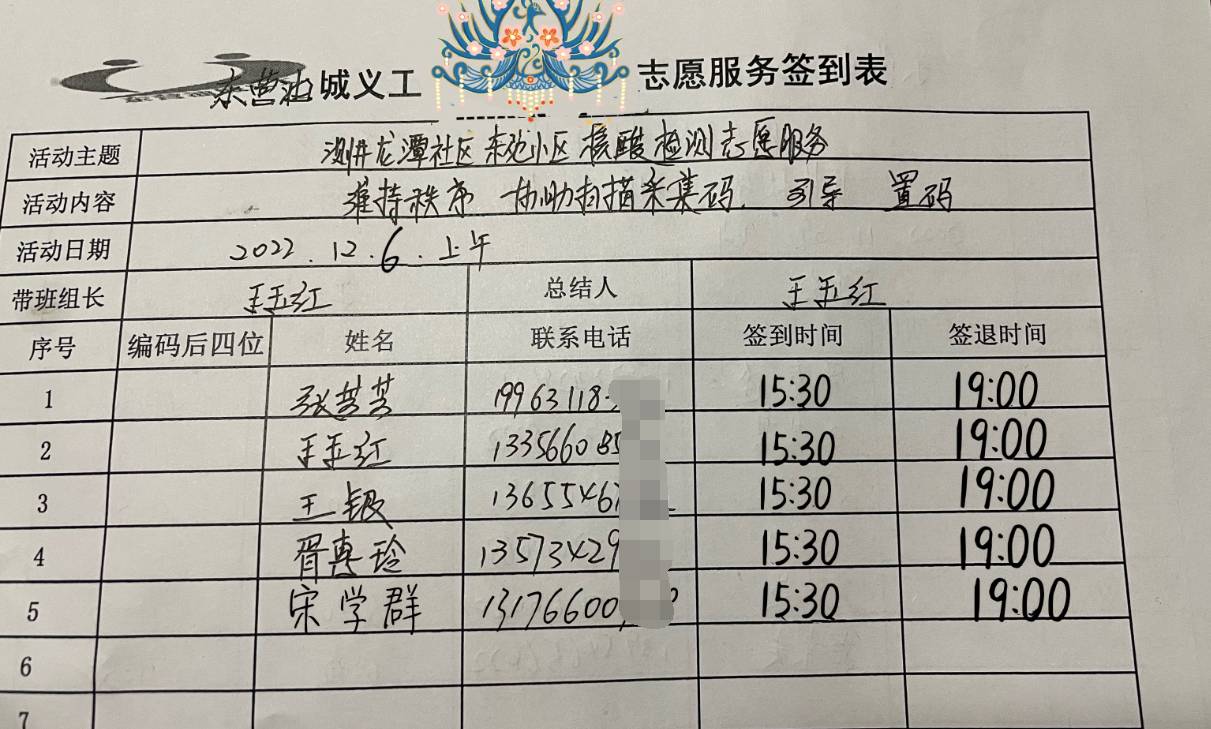 东营油城义工 志愿服务签到表
活动主题 测井龙潭社区东苑小区 核酸检测志愿服务
活动内容 维持秩序 协助扫描采集码. 引导 置码
活动日期 2022.12.6.上午
带班组长 王玉红 总结人 王玉红
序号 编码后四位 姓名 联系电话 签到时间 签退时间
1 张芳芳 19963118 15:30 19:00
2 王玉红 133566085 15:30 19:00
3 王银 13655467 15:30 19:00
4 胥惠玲 13573429 15:30 19:00
5 宋学群 13176600 15:30 19:00
6
7